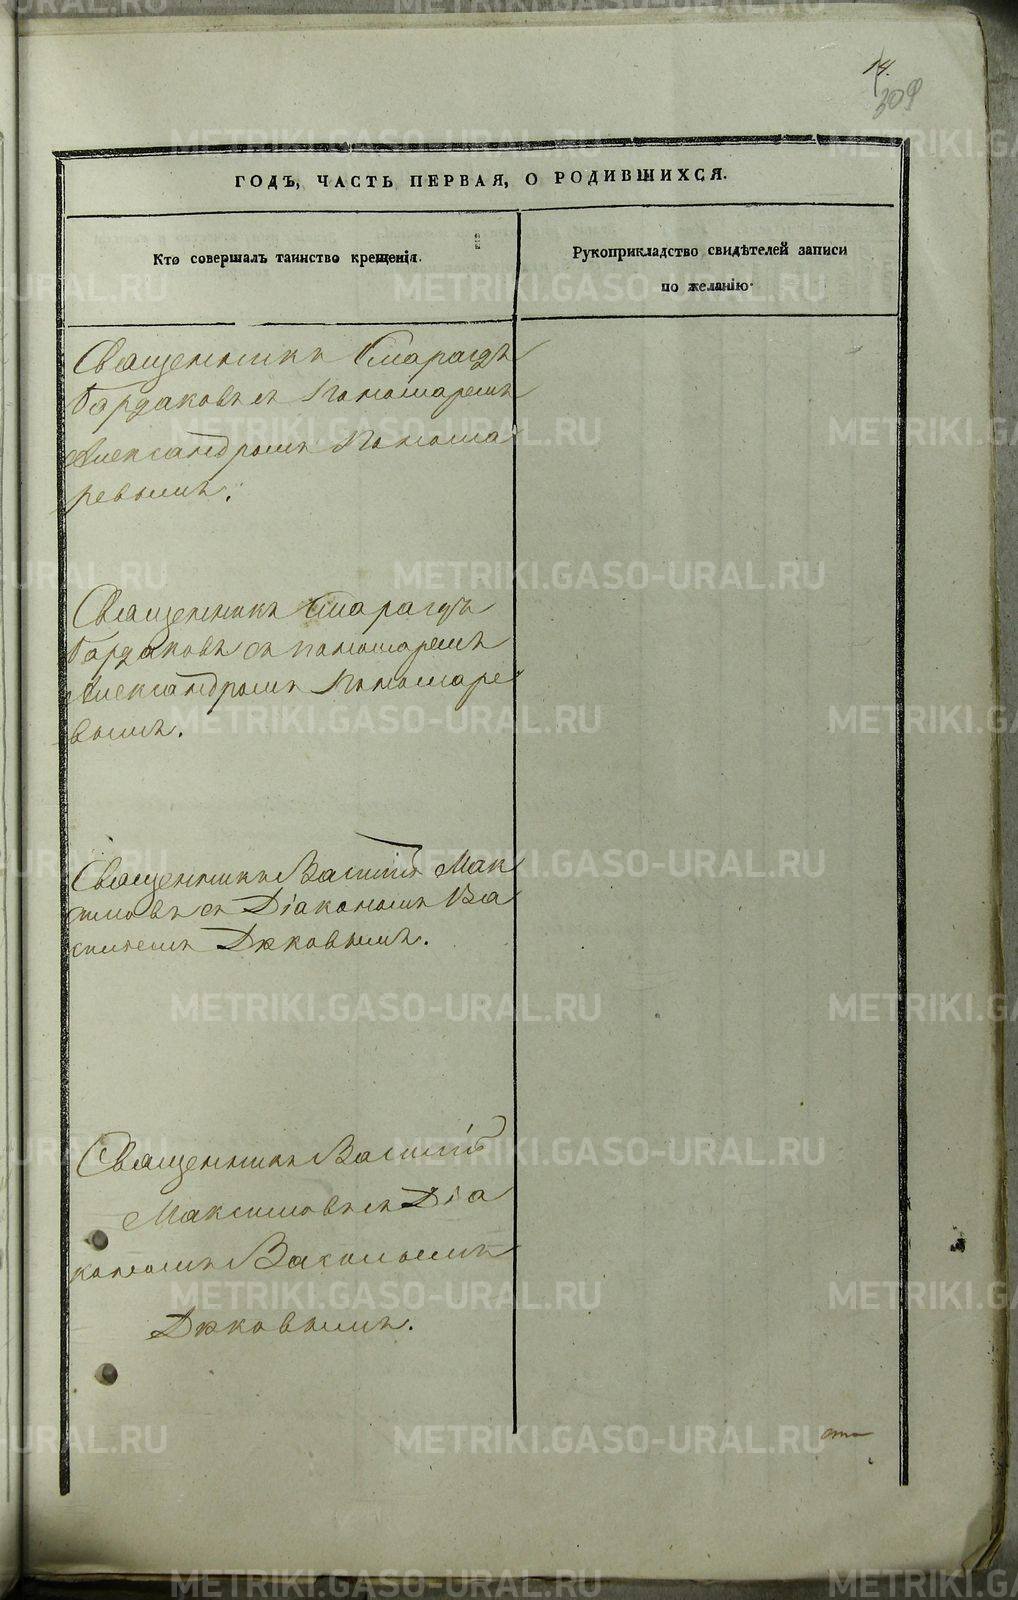 14.
309
ГОДЪ, ЧАСТЬ ПЕРВАЯ, О РОДИВШИХСЯ.
Кто совершалъ таинство крещенія.
Рукоприкладство свидѣтелей записи
по желанію.
Священникъ Смарагдъ
Гордаковъ съ Пономаремъ
Александромъ Понома
ревымъ.
Священникъ Смарагдъ
Гордаковъ съ пономаремъ
Александромъ Пономаре
вымъ.
Священникъ Василій Мак
симовъ съ Діакономъ Ва
силіемъ
Священникъ Василій
Максимовъ съ Діа
кономъ Васильемъ
METRIKI.GASO-URAL.RU